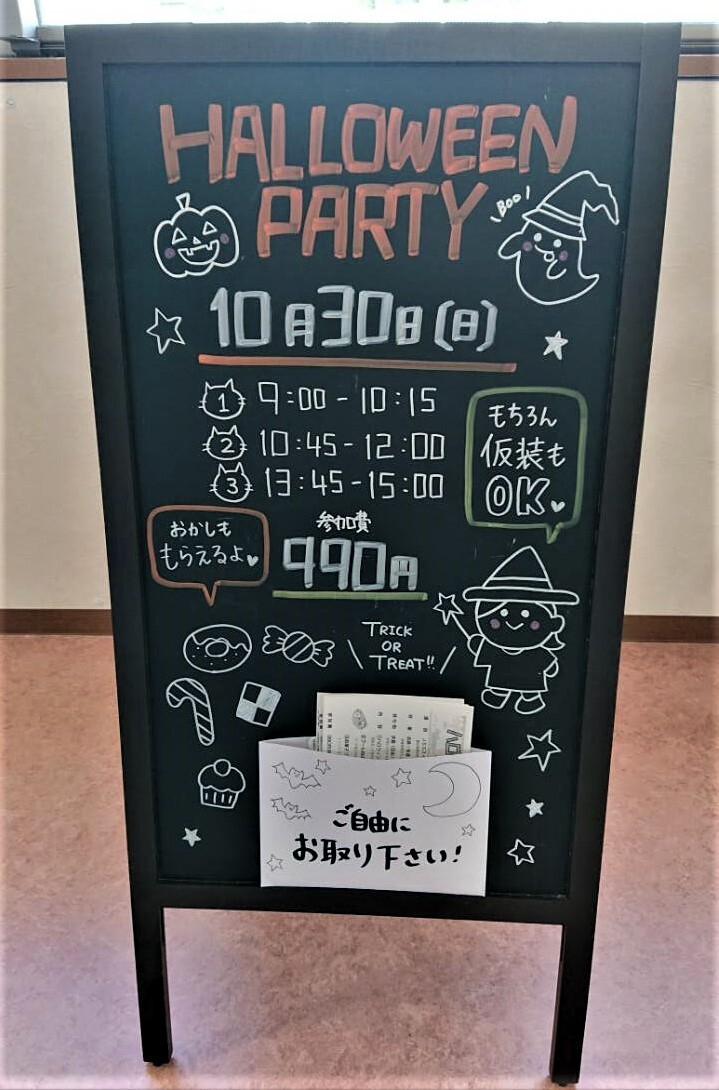 HALLOWEEN
PARTY
BOO!
10月30日(日)
1 9:00-10:15
2 10:45-12:00
3 13:45-15:00
もちろん
仮装も
OK
おかしも
もらえるよ
参加費
990円
TRICK
OR
TREAT!!
ご自由に
お取り下さい!